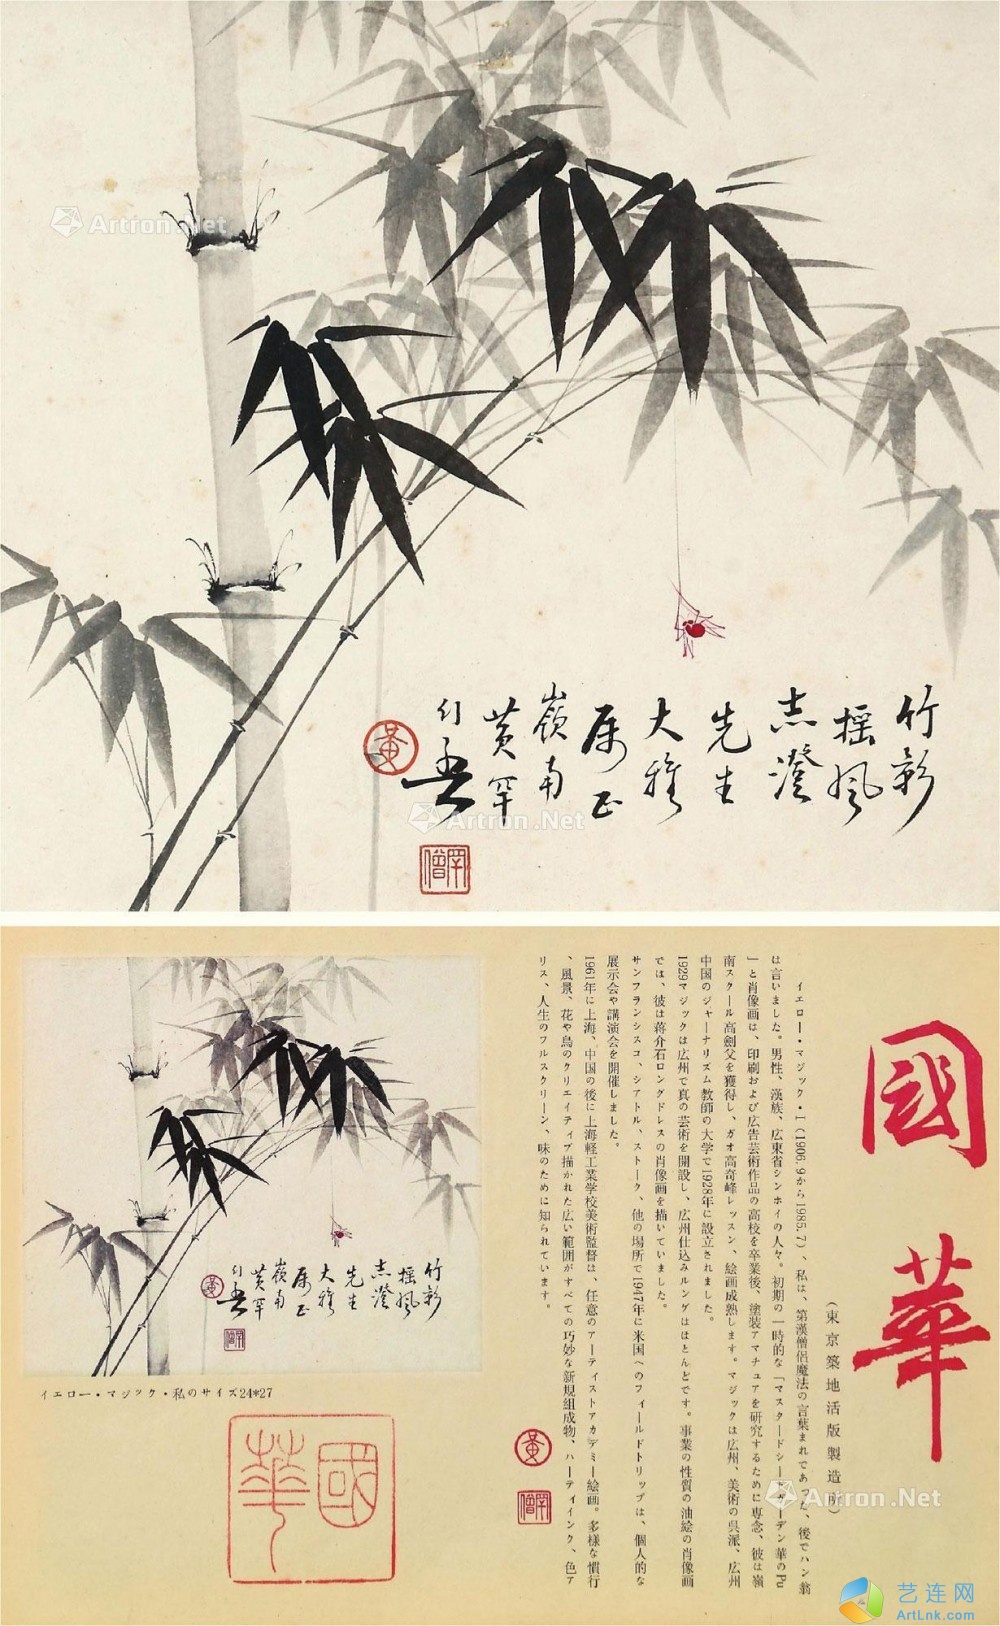 竹影
摇风
志澄
先生
大雅
属正
嶺南
黄罕
幻吾
黄
罕僧
Artron.Net
Artron.Net
國華
（東京築地活版製造所）
イエロー・マジック・I（1906. 9から1985. 7）、私は、第漢僧侶魔法の言葉まれであった、後でハン翁
は言いました。男性、漢族、広東省シンホイの人々。初期の一時的な「マスタードシードガーデン華のPu
」と肖像画は、印刷および広告芸術作品の高校を卒業後、塗装アマチュアを研究するために専念、彼は嶺
南スクール高劍父を獲得し、ガオ高奇峰レッスン、絵画成熟します。マジックは広州、美術の呉派、広州
中国のジャーナリズム教師の大学で1928年に設立されました。
1929マジックは広州で真の芸術を開設し、広州仕込みルングはほとんどです。事業の性質の油絵の肖像画
では、彼は蒋介石ロングドレスの肖像画を描いていました。
サンフランシスコ、シアトル、ストーク、他の場所で1947年に米国へのフィールドトリップは、個人的な
展示会や講演会を開催しました。
1961年に上海、中国の後に上海軽工業学校美術監督は、任意のアーティストアカデミー絵画。多様な慣行
、風景、花や鳥のクリエイティブ描かれた広い範囲がすべての巧妙な新規組成物、ハーティインク、色ア
リス、人生のフルスクリーン、味のために知られています。
黄
罕僧
竹影
摇风
志澄
先生
大雅
属正
嶺南
黄罕
幻吾
黄
罕僧
イエロー・マジック・私のサイズ24*27
國華
Artron.Net
艺连网
ArtLnk.com